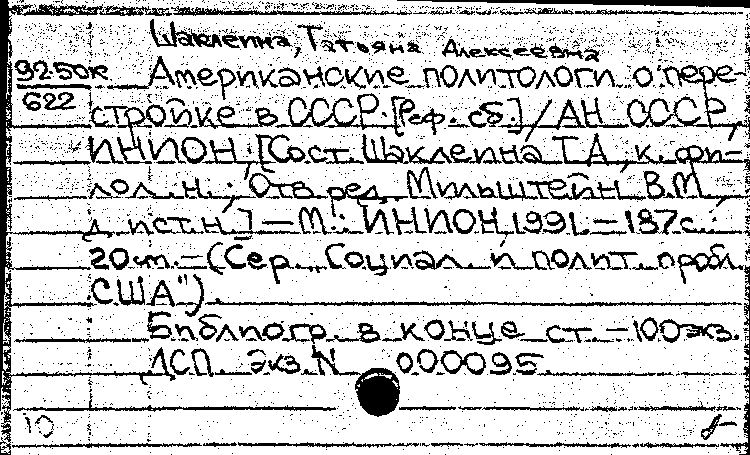 Шаклеина, Татьяна Алексеевна
92-50к Американские политологи о пере-
622 стройке в СССР: [Реф. сб.] / АН СССР,
ИНИОН; [Сост. Шаклеина Т.А., к. фи-
лол. н.; Отв. ред. Мильштейн В.М.,
д. ист. н.] – М.: ИНИОН, 1991. – 187с.;
20см. – (Сер. „Социал. и полит. пробл.
США").
Библиогр. в конце ст. – 100экз.
ДСП. Экз. N 000095.
10